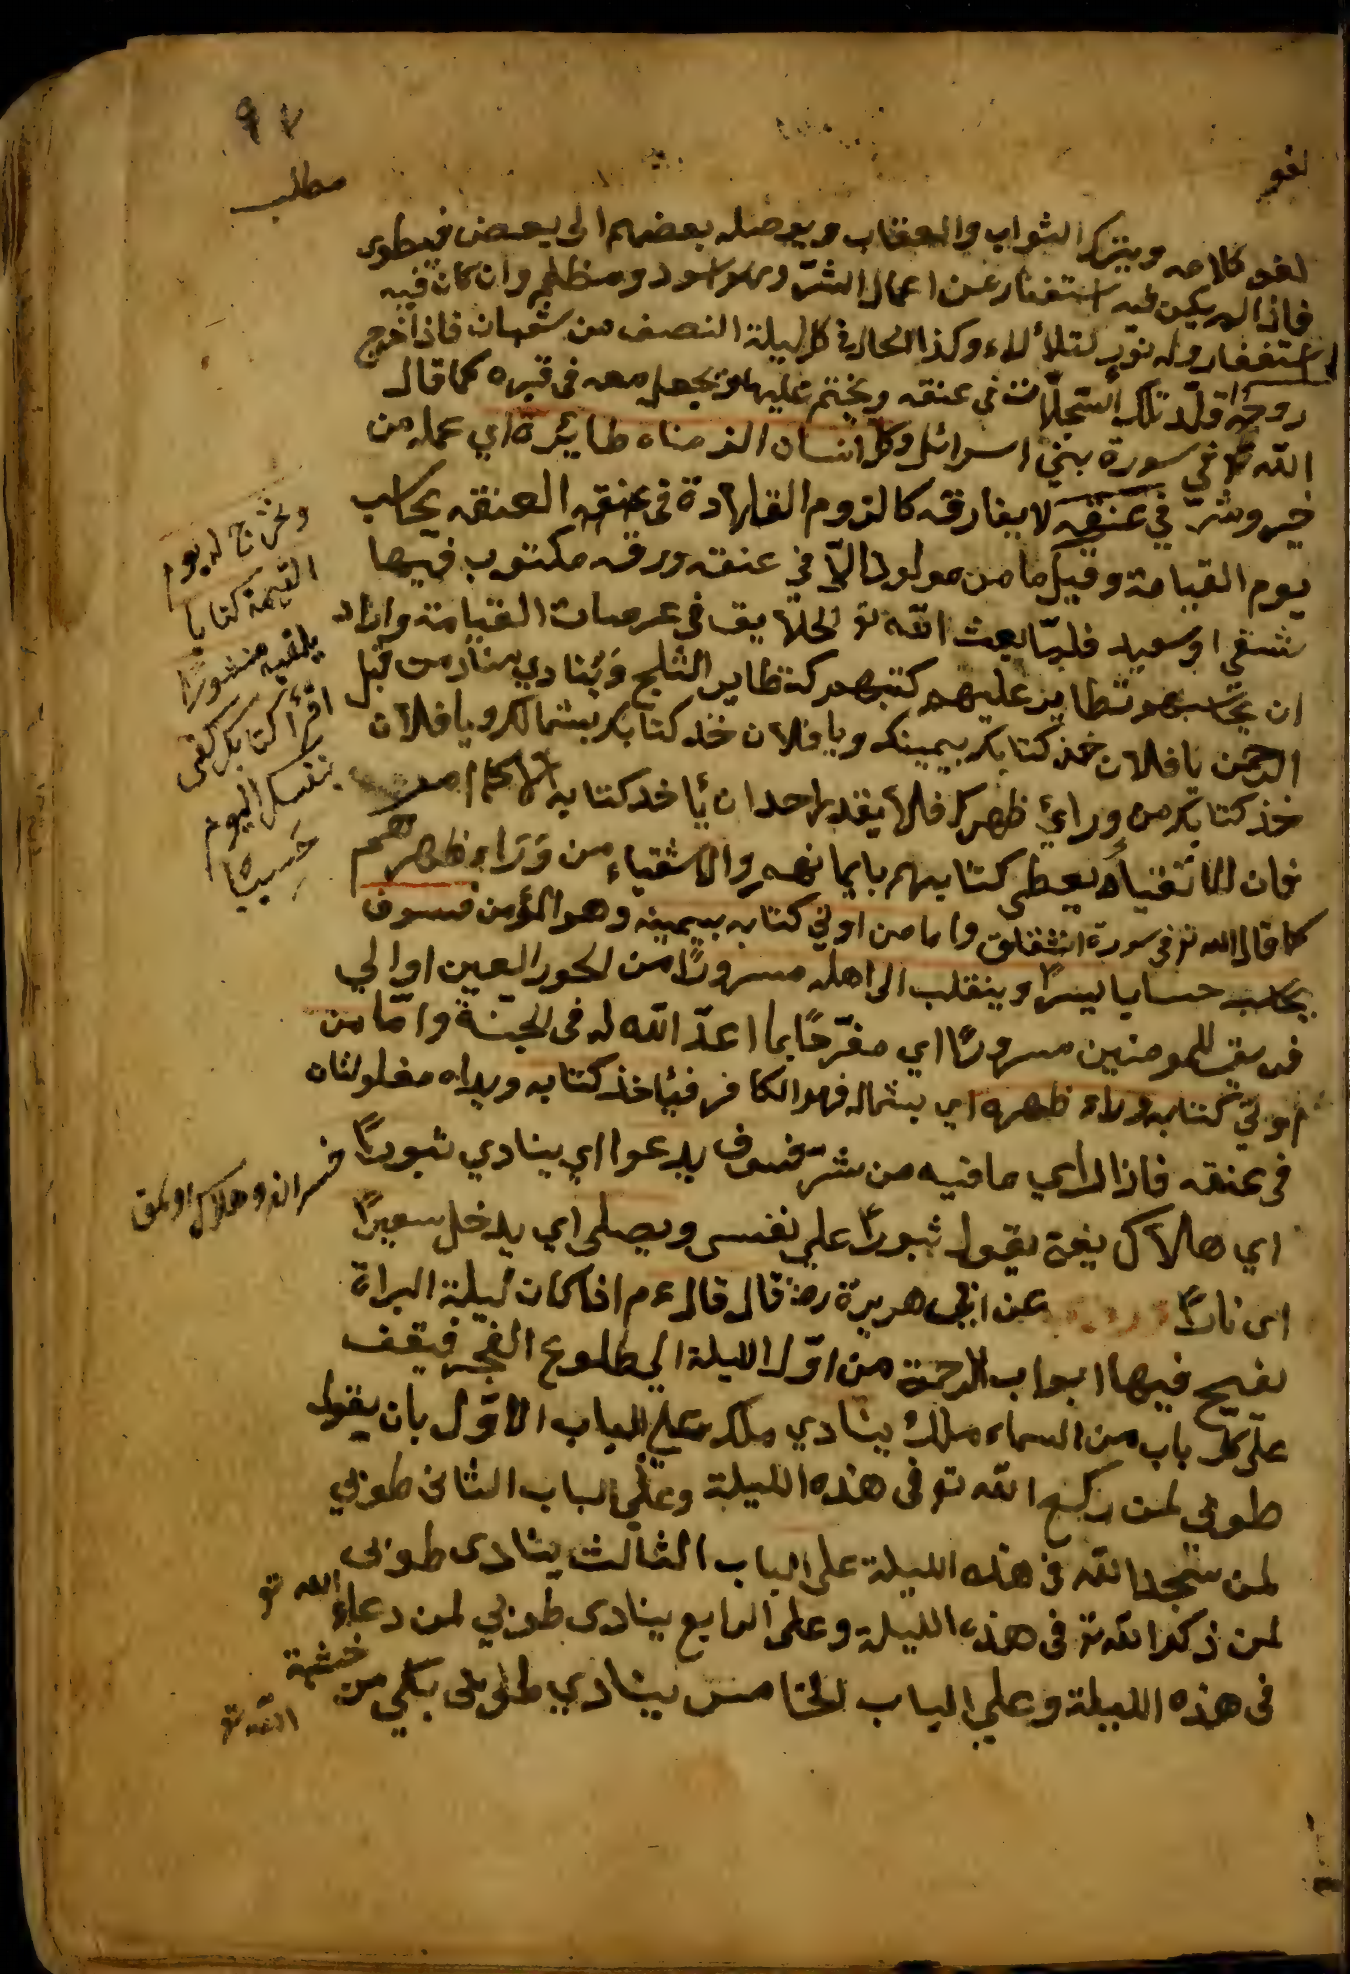 ٩٧
لغو
مطلب
لغو كلامه ويترك الثواب والعقاب ويوصله بعضهم الى بعض فيطوى
فاذا لم يكن فيه استغفار عن اعمال الشرّ وهو اسود ومظلم وان كان فيه
استغفار وله نور يتلألاء وكذا الحال في كل ليلة النصف من شعبان فاذا اخرج
روحه قلّد تلك السّجلّات في عنقه ويختم عليها ويجعل معه في قبره كما قال
اللّه تع في سورة بني اسرائل وكل انسان الزمناه طائره اي عمله من
خير وشرّ في عنقه لا يفارقه كالزوم القلادة في عنقه العنقه يحاسب
يوم القيامة وقيل ما من مولود الّا في عنقه ورقة مكتوب فيها
شقي او سعيد فلمّا بعث اللّه تع الخلايق في عرصات القيامة واراد
ان يحاسبهم تطاير عليهم كتبهم كتطاير الثلج وينادي مناد من قبل
الرحمن يا فلان خذ كتابك بيمينك ويا فلان خذ كتابك بشمالك ويا فلان
خذ كتابك من ورائ ظهرك فلا يقدر احد ان يأخذ كتابه الا كما امر
فان الاتقياء يعطى كتابهم بايمانهم والاشقياء من وَرَاء ظهرهم
كما قال الله تع في سورة انشقاق واما من اوتي كتابه بيمينه وهو المؤمن فسوف
يحاسب حسابا يسيرًا وينقلب الى اهله مسرورًا من الحور العين او الي
فريق المومنين مسرورًا اي مفرّحًا بما اعدّ اللّه له في الجنّة وامّا من
اوتي كتابه وراء ظهره اي بشماله فهو الكافر فيأخذ كتابه ويداه مغلولتان
في عنقه فاذا رأي ما فيه من شرّ فسوف يدعوا اي ينادي ثبورًا
اي هلاك يعني يقول ثبورًا علي نفسى ويصلى اي يدخل سعيرًا
اى نارًا عن ابي هريرة رض قال قال ع م اذا كان ليلة البراة
يفتح فيها ابواب الرحمة من اوّل الليلة الي طلوع الفجر فيقف
على كل باب من السماء ملك ينادي ملك علي الباب الاوّل بان يقول
طوبى لمن ركع اللّه تع في هذه الليلة وعلي الباب الثانى طوبي
لمن سجد اللّه في هذه الليلة على الباب الثالث ينادى طوبى
لمن ذكر اللّه تع في هذه الليلة وعلى الرابع ينادى طوبي لمن دعاء الله تع
في هذه الليلة وعلي الباب الخامس ينادي طوبى بكي من خشية
اللّه تع
ونخرج له يوم
القيمة كتابا
يلقيه منشورًا
اقرأ كتابك كفى
بنفسك اليوم
حَسِيبًا